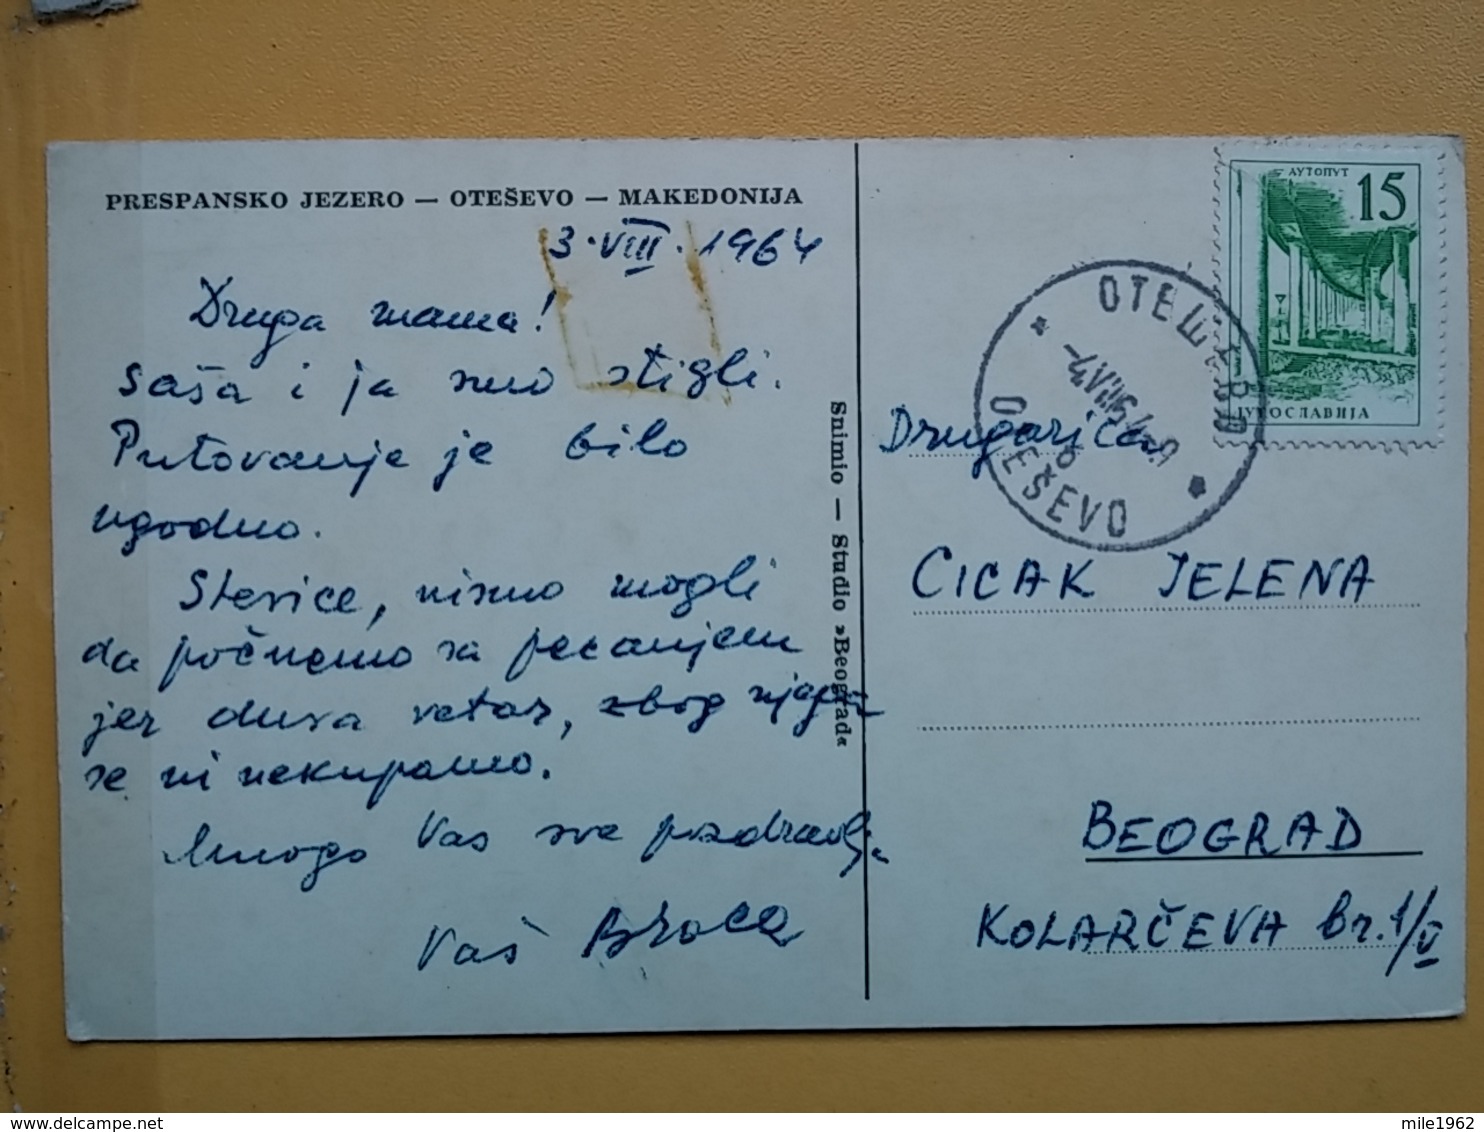 PRESPANSKO JEZERO — OTEŠEVO — MAKEDONIJA
3.VIII.1964
Druga mama!
Saša i ja smo stigli.
Putovanje je bilo
ugodno.
Stevice, nismo mogli
da počnemo sa pecanjem
jer duva vetar, zbog njega
se ni nekupamo.
Mnogo Vas sve pozdravlja
Vaš Broca
Snimio — Studio »Beograd«
АУТОПУТ 15
ЈУГОСЛАВИЈА
ОТЕШЕВО
OTEŠEVO
Drugarica
CICAK JELENA
BEOGRAD
KOLARČEVA br. 1/V
mile1962